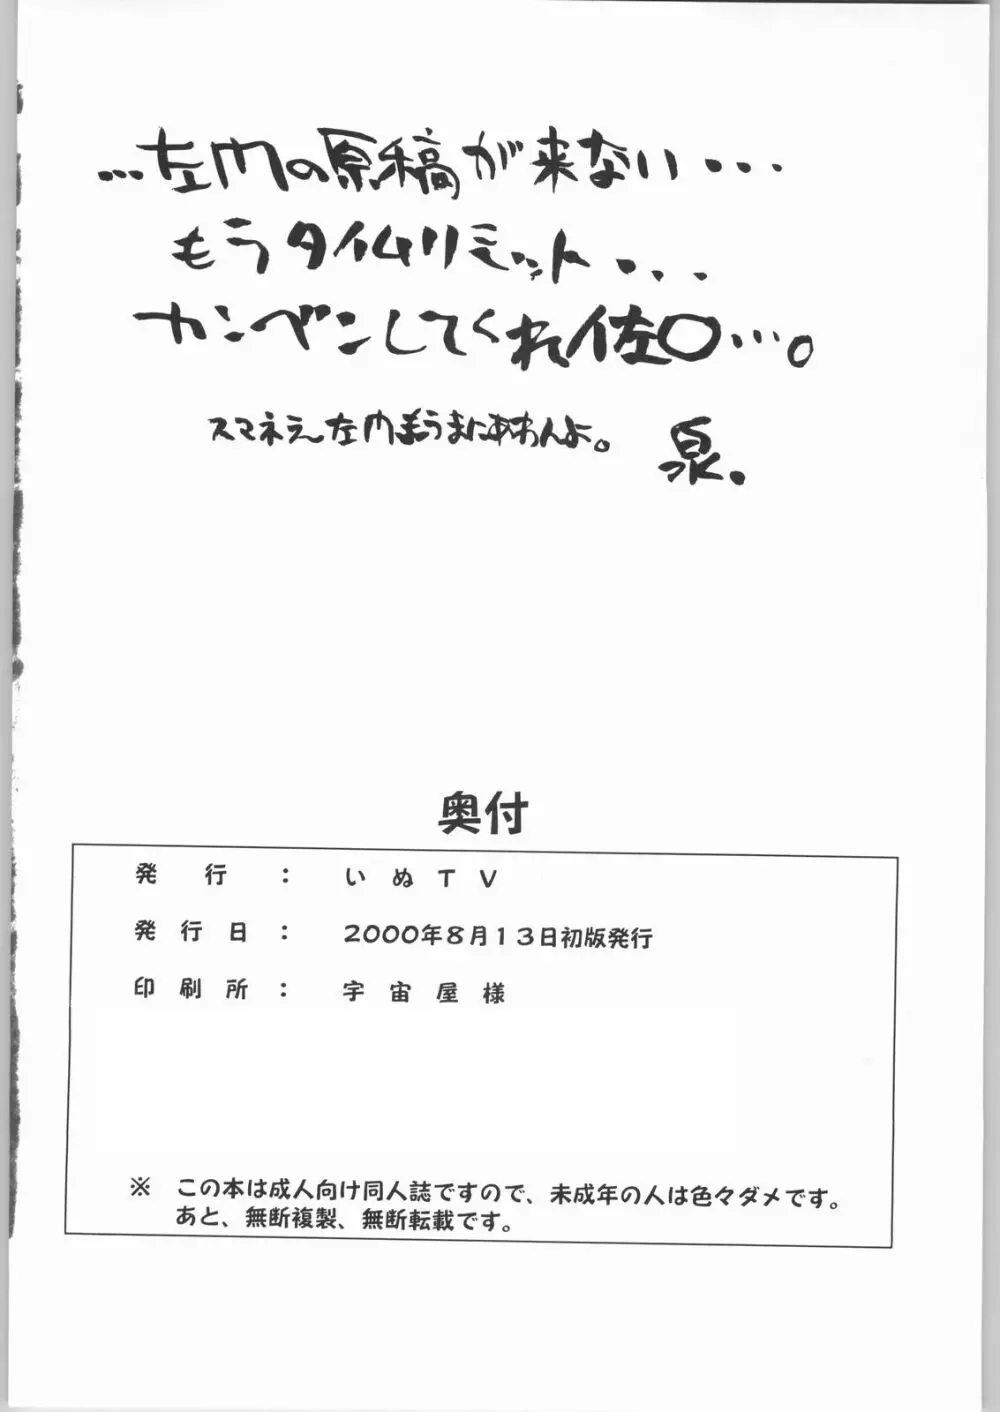 …左内の原稿が来ない・・・
もうタイムリミット・・・
カンベンしてくれ佐〇…。
スマネェ左内もうまにあわんよ。
泉。
奥付
発行：いぬTV
発行日：2000年8月13日初版発行
印刷所：宇宙屋様
※ この本は成人向け同人誌ですので、未成年の人は色々ダメです。
あと、無断複製、無断転載です。